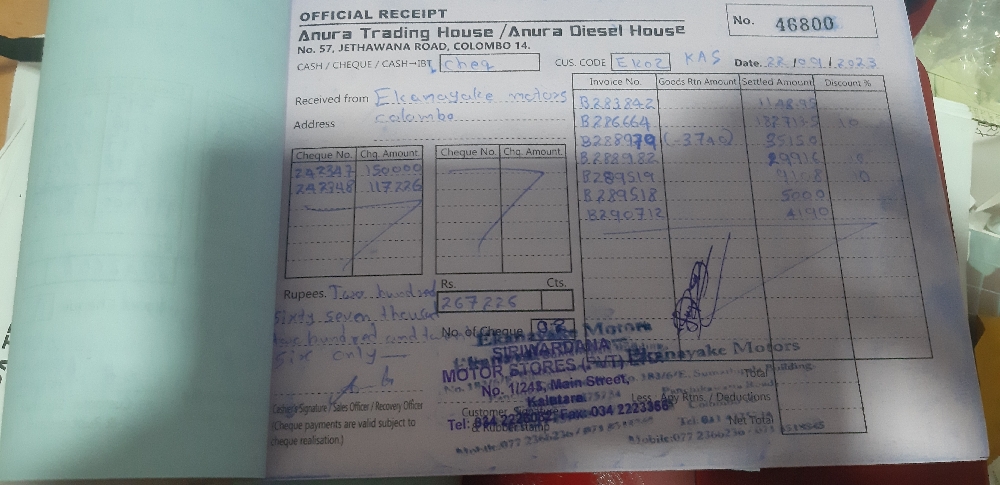 OFFICIAL RECEIPT
No. 46800
Anura Trading House / Anura Diesel House
No. 57, JETHAWANA ROAD, COLOMBO 14.
CASH / CHEQUE / CASH→IBT cheq CUS. CODE EK02 KAS Date. 22/09/2023
Received from Ekanayake motors
Address colombo
Invoice No. Goods Rtn Amount Settled Amount Discount %
B283842
B286664 10
B228979
B288982 29916
B289519 9108 10
B289518 5000
B290712 4190
Cheque No. Chq. Amount Cheque No. Chq. Amount
242347 150000
242348 117226
Rs. Cts.
267226
Rupees. Two hundred
sixty seven thousand
two hundred and twenty
six only
No. of Cheque 02
Ekanayake Motors
SIRIWARDANA
MOTOR STORES (PVT)
No. 1/243, Main Street,
Kalutara.
Fax: 034 2223368
Ekanayake Motors
Cashier's Signature / Sales Officer / Recovery Officer
(Cheque payments are valid subject to
cheque realisation.)
Customer
& Rubber stamp
Total
Less : Any Rtns. / Deductions
Net Total
Mobile:077 2366236
Mobile:077 2366236